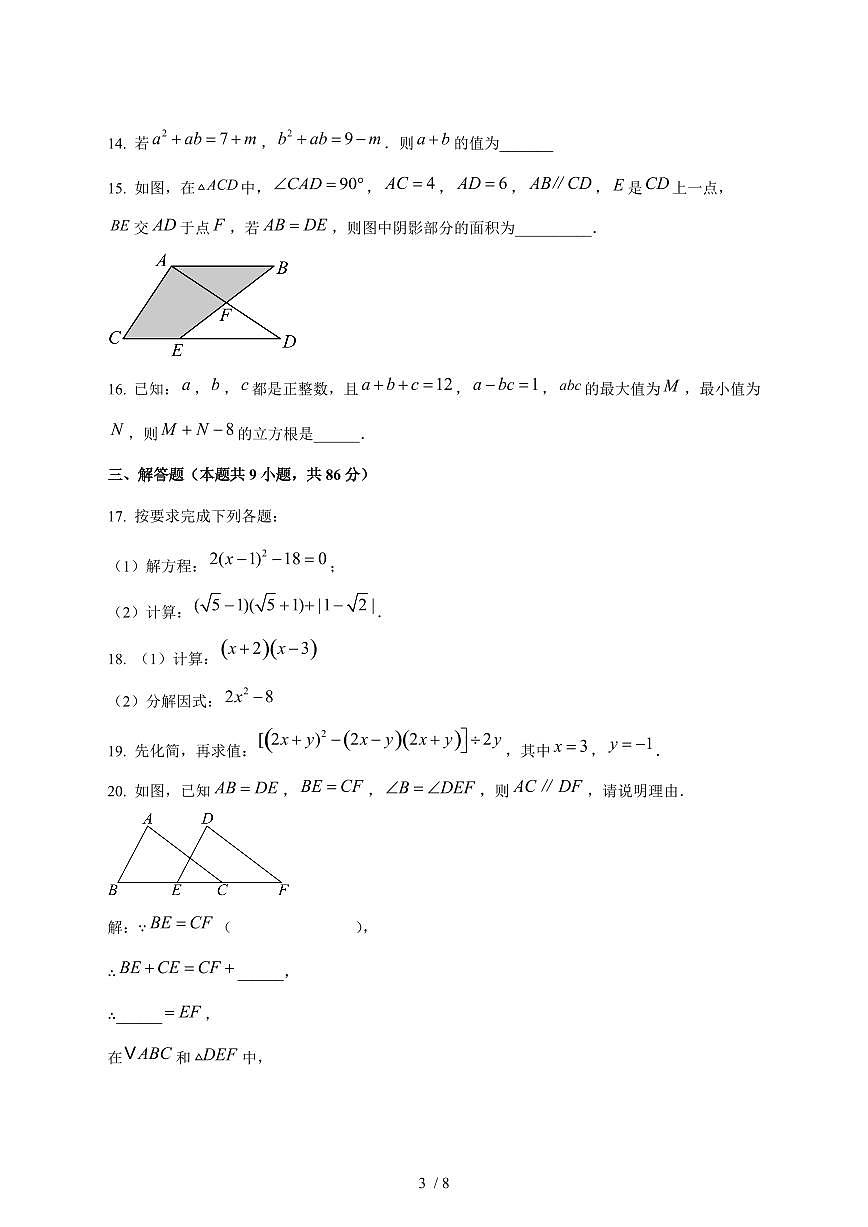 14. 若 a² + ab = 7 + m ，b² + ab = 9 − m ．则 a + b 的值为_______
15. 如图，在 △ACD 中，∠CAD = 90°，AC = 4，AD = 6，AB∥CD，E 是 CD 上一点，
BE 交 AD 于点 F ，若 AB = DE ，则图中阴影部分的面积为__________．
A
B
F
C
D
E
16. 已知：a，b，c 都是正整数，且 a + b + c = 12，a − bc = 1，abc 的最大值为 M ，最小值为
N ，则 M + N − 8 的立方根是______．
三、解答题（本题共 9 小题，共 86 分）
17. 按要求完成下列各题：
（1）解方程：2(x − 1)² − 18 = 0；
（2）计算：(√5 − 1)(√5 + 1)+ | 1 − √2 |．
18. （1）计算：(x + 2)(x − 3)
（2）分解因式：2x² − 8
19. 先化简，再求值：[(2x + y)² − (2x − y)(2x + y)] ÷ 2y ，其中 x = 3，y = −1．
20. 如图，已知 AB = DE，BE = CF，∠B = ∠DEF ，则 AC ∥ DF ，请说明理由．
A D
B E C F
解：∵ BE = CF （ ），
∴ BE + CE = CF + ______，
∴______ = EF ，
在 VABC 和 △DEF 中，
3 / 8